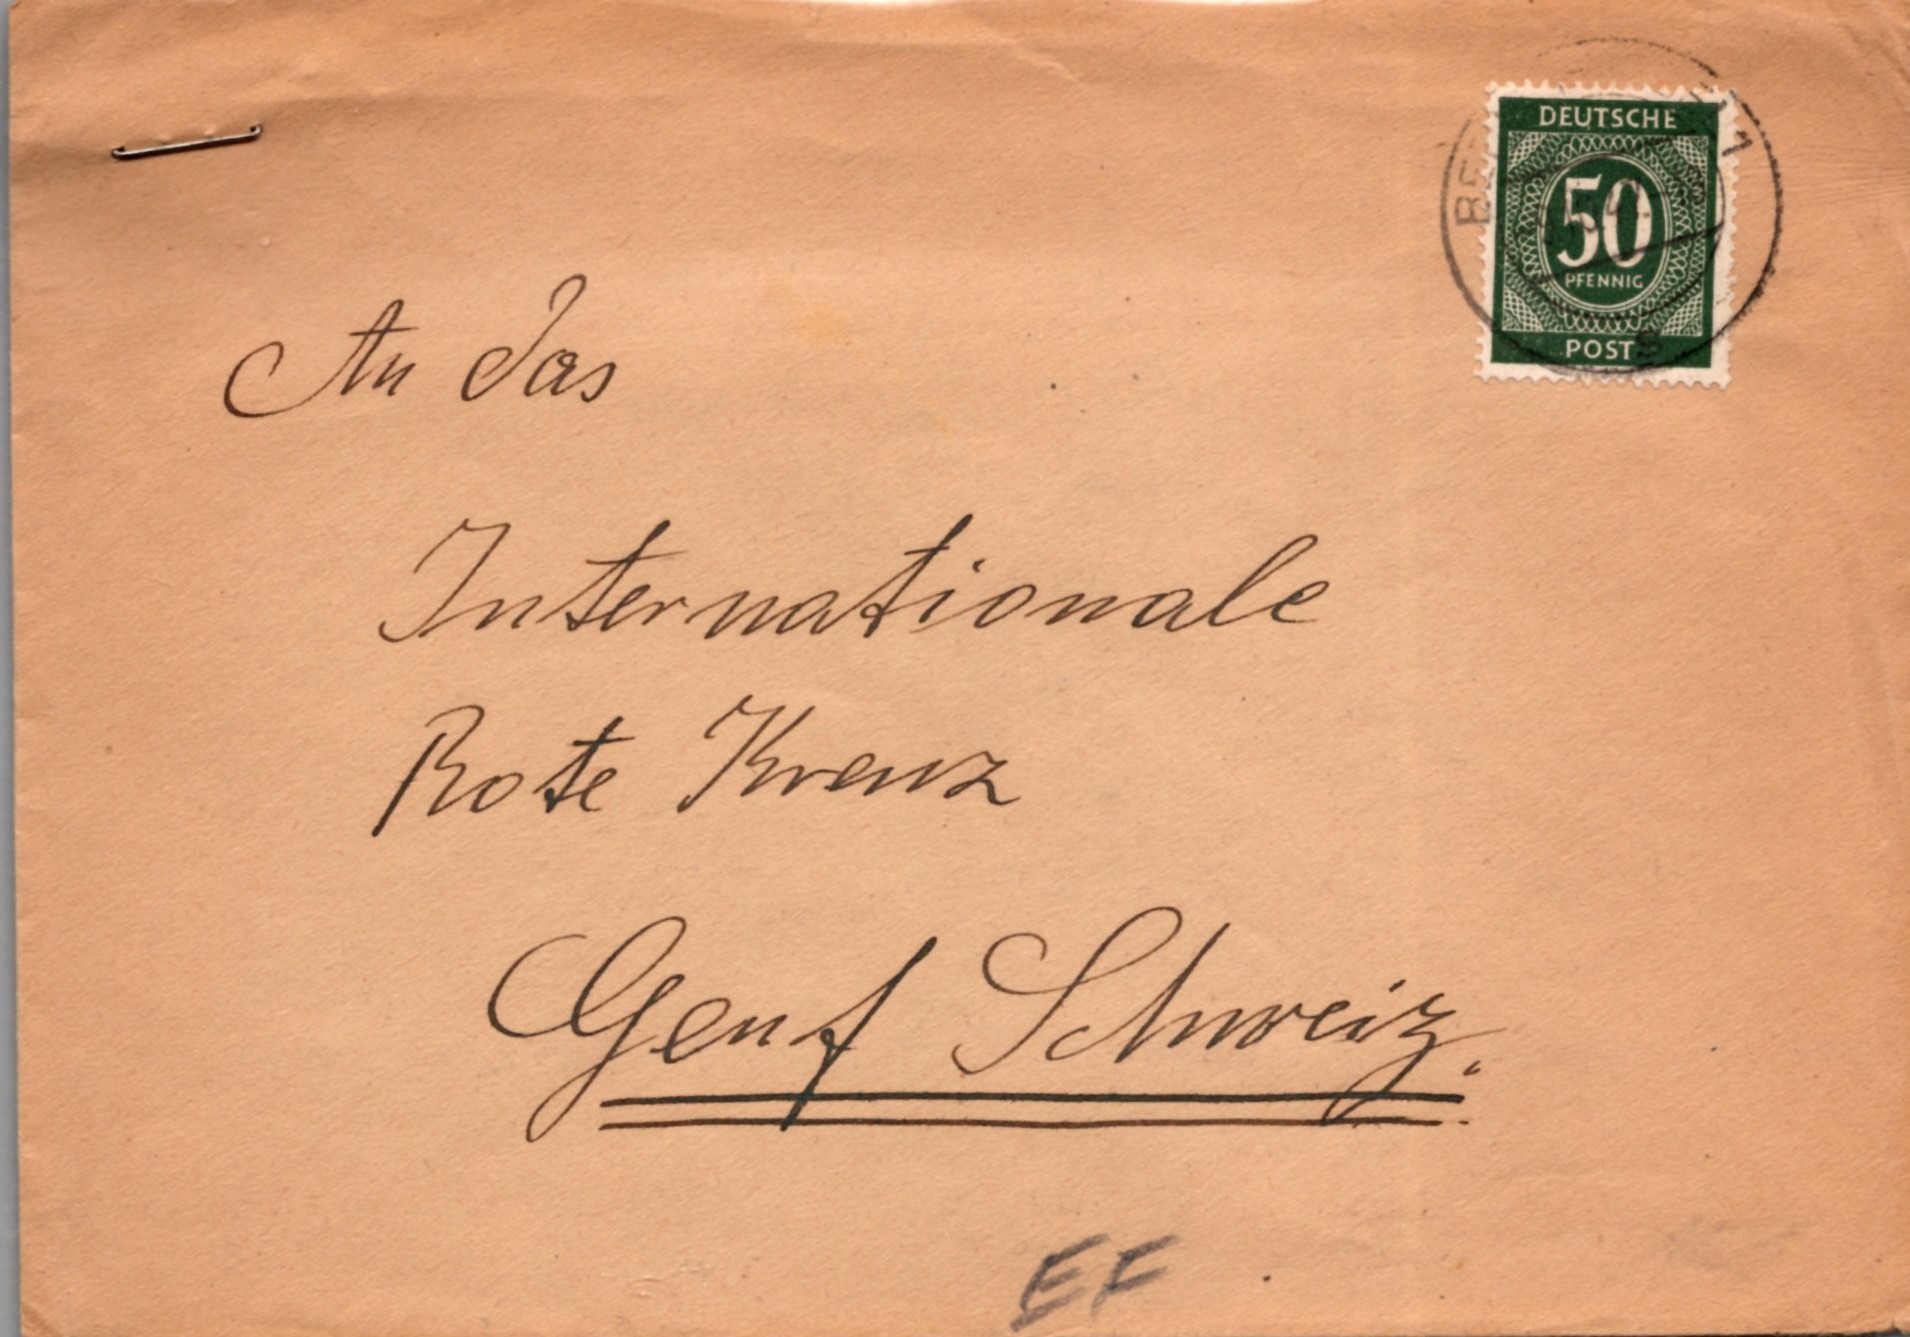 DEUTSCHE
50
PFENNIG
POST
An das
Internationale
Rote Kreuz
Genf Schweiz.
EF